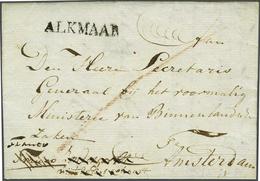 ALKMAAR
Aan
Den Heere Secretaris
Generaal bij het voormalig
Ministerie van Binnenlandsche
Zaken
Te
Amsterdam